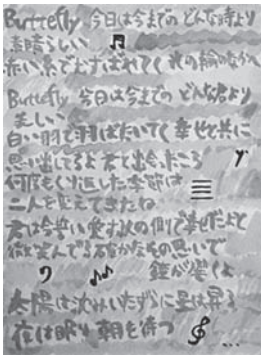 Butterfly 今日は今までの どんな時より
素晴らしい
赤い糸でむすばれてく 光の輪のなかへ
Butterfly 今日は今までの どんな君より
美しい
白い羽で羽ばたいてく 幸せと共に
思い出してるよ 君と出会ったころ
何度もくり返した季節は
二人を変えてきたね
君は今誓い愛する人の側で幸せだよと
微笑んでる 確かなその思いで
鐘が響くよ
太陽は沈みいたずらに星は昇る
夜は眠り 朝を待つ
...